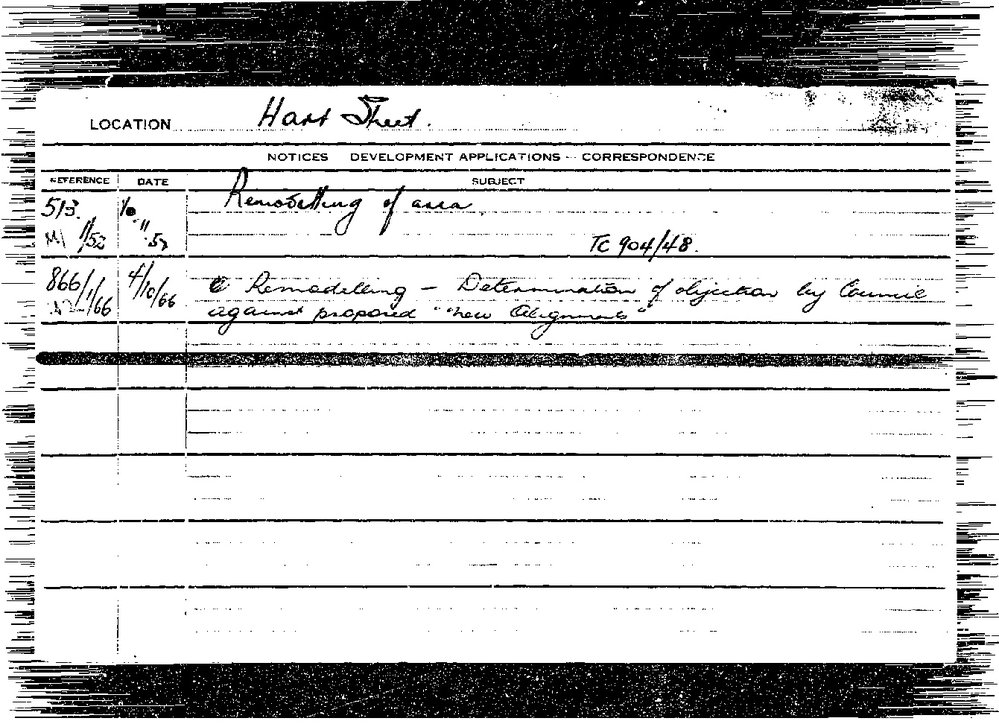 LOCATION Hart Street.
NOTICES DEVELOPMENT APPLICATIONS - CORRESPONDENCE
REFERENCE DATE SUBJECT
513. Remodelling of area
11/52 11 52 TC 904/48.
866/1/66 4/10/66 Remodelling - Determination of objection by Council
against proposed "new Alignments"